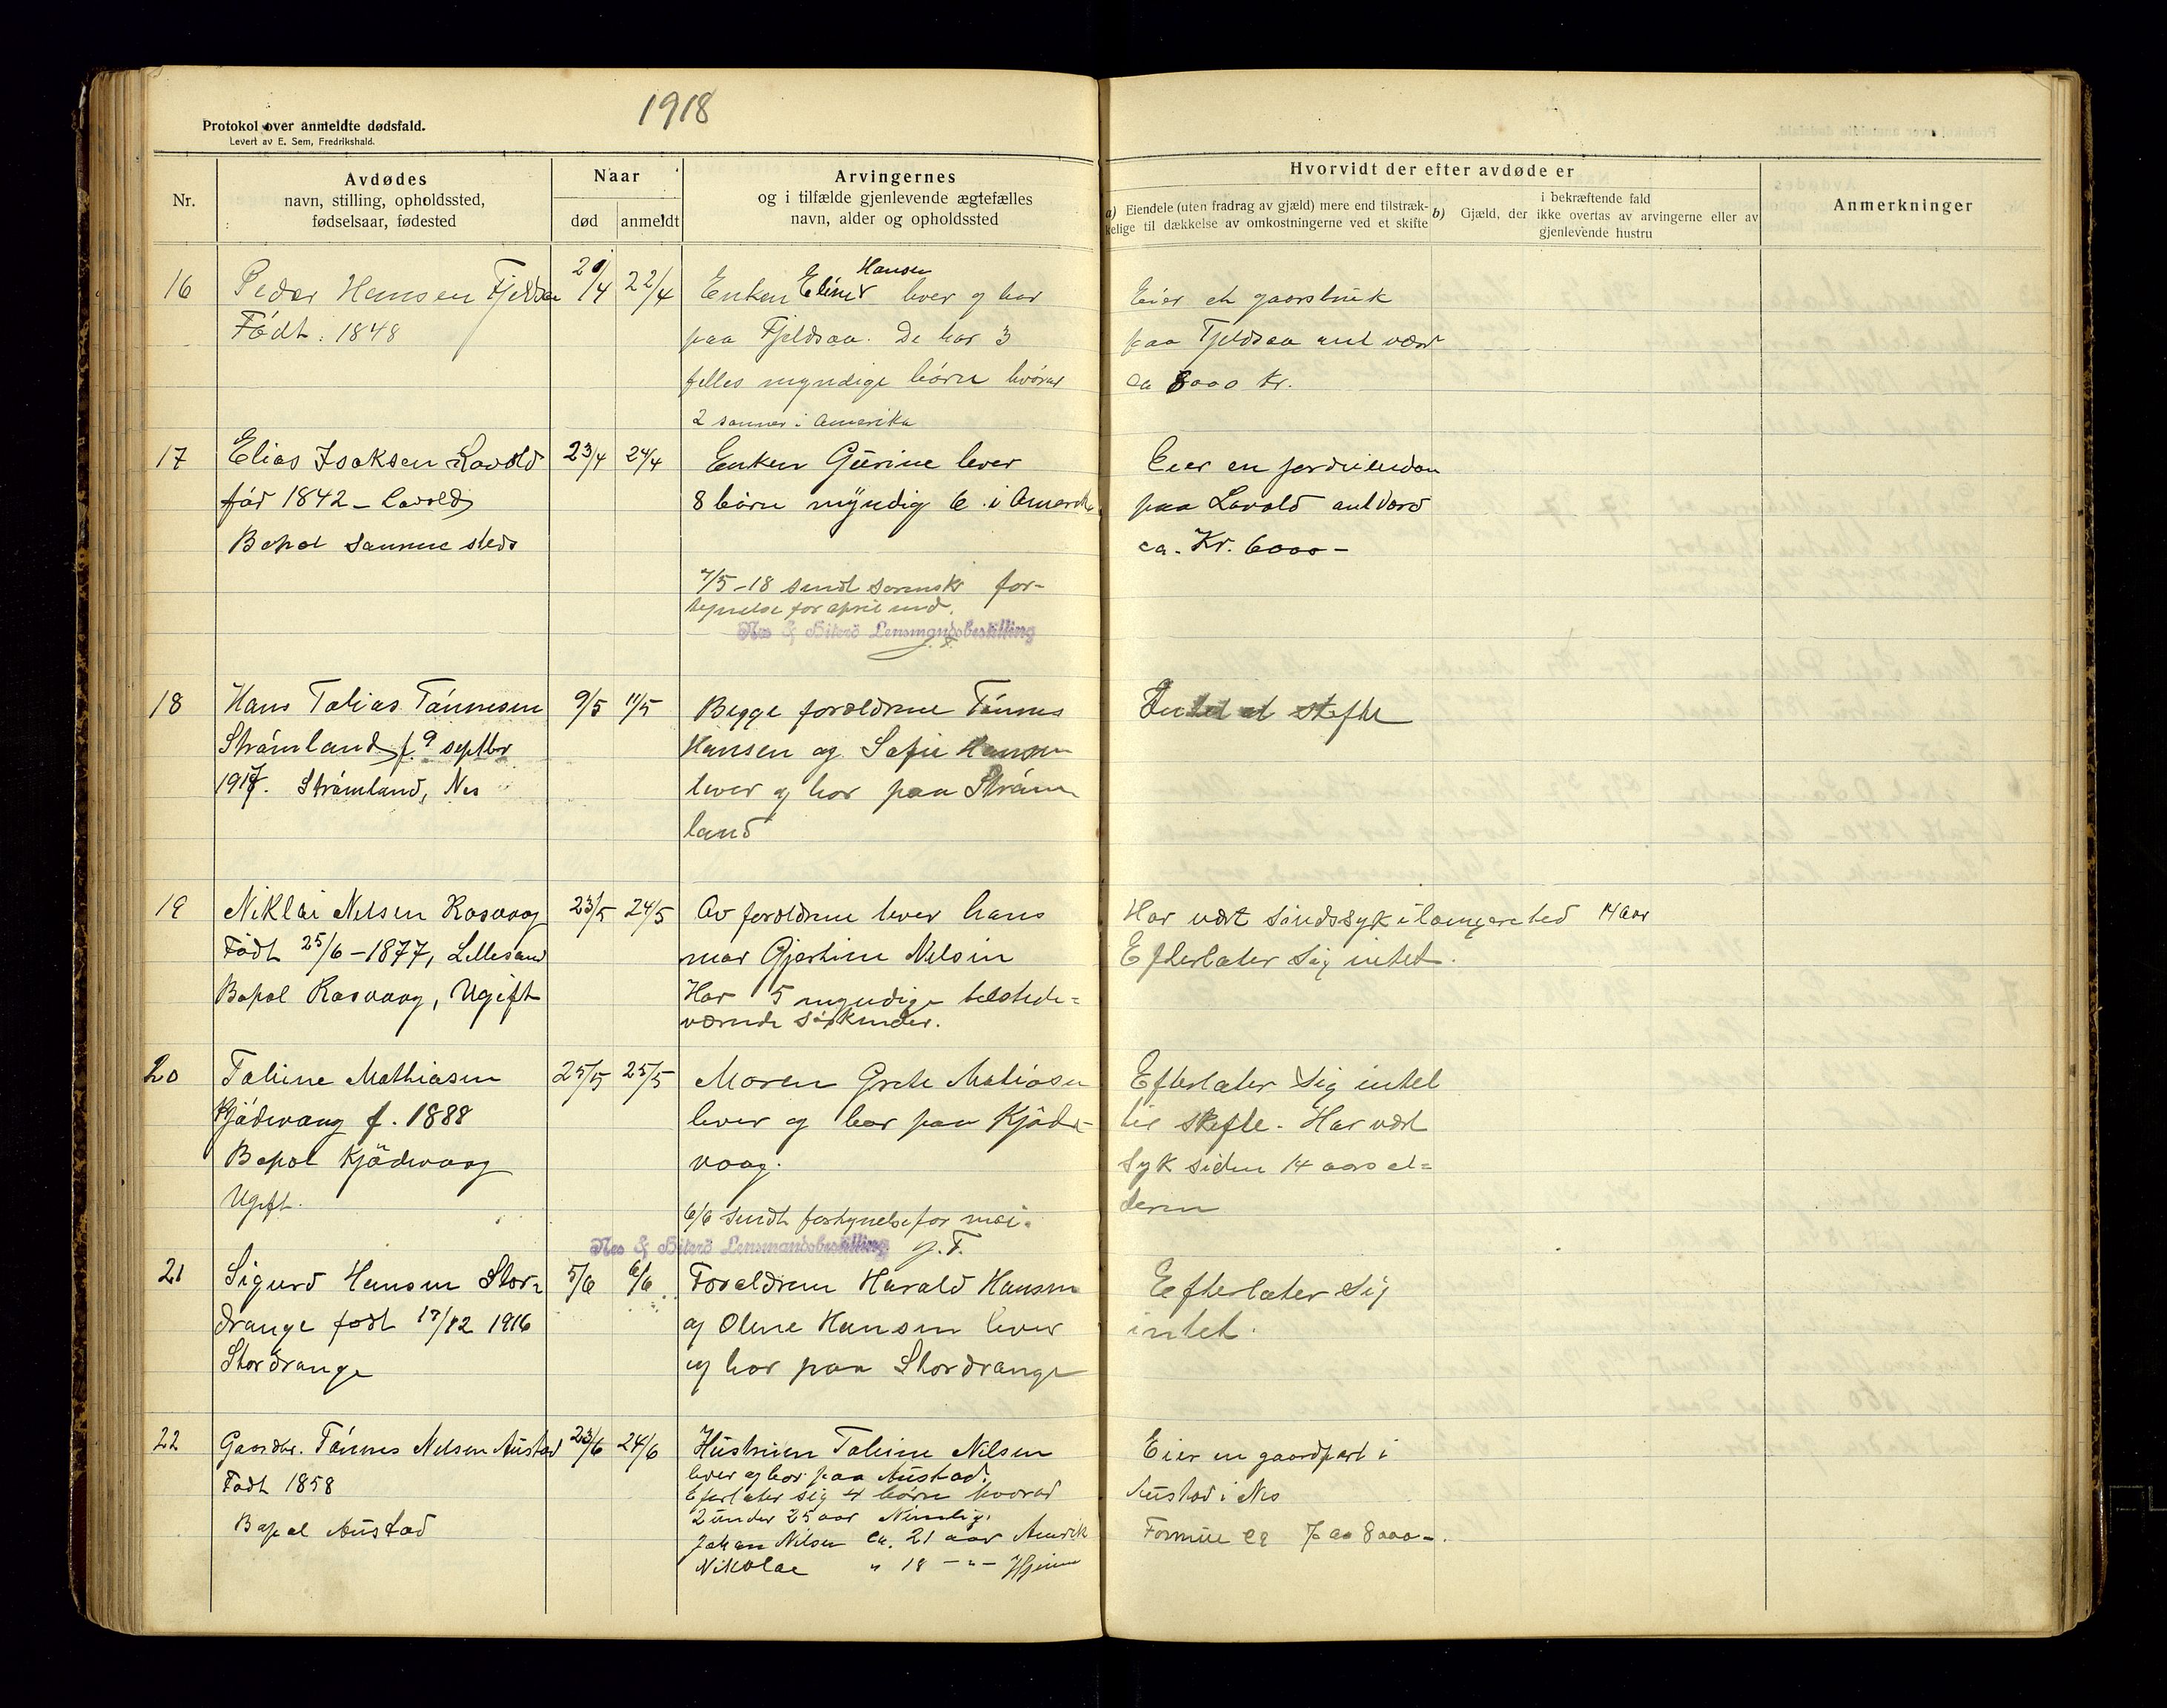 1918
Protokol over anmeldte dødsfald.
Levert av E. Sem, Fredrikshald.
Nr.
Avdødes
navn, stilling, opholdssted,
fødselsaar, fødested
Naar
død
anmeldt
Arvingernes
og i tilfælde gjenlevende ægtefælles
navn, alder og opholdssted
Hvorvidt der efter avdøde er
a) Eiendele (uten fradrag av gjæld) mere end tilstræk-
kelige til dækkelse av omkostningerne ved et skifte
i bekræftende fald
b) Gjæld, der ikke overtas av arvingerne eller av
gjenlevende hustru
Anmerkninger
16
Peder Hansen Fjeldsaa
Født: 1848
22/4
Hansen
Enken lever og bor
paa Fjeldsaa. De har 3
felles myndige börn hvorav
2 sønner i Amerika
Eier et gaardsbruk
paa Fjeldsaa ant verd
ca 8000 Kr.
17
Elias Isaksen Lavold
fød 1842 - Lavold
Bopæl samme steds
23/4
24/4
Enken Gurine lever
8 börn myndig 6 i Amerika
Eier en jordeiendom
paa Lavold ant verd
ca. Kr. 6000 -
7/5-18 sendt sorenskr for-
tegnelse for april md.
Nes & Hiterö Lensmandsbestilling
J. F.
18
Hans Tobias Tönnesen
Strömland f. 9 septbr
1917. Strömland, Nes
9/5
11/5
Begge foreldrene Tönnes
Hansen og Sofie Hansen
lever og bor paa Ström
land
Intet at skifte
19
Niklai Nilsen Rasvaag
Født 25/6 - 1877, Lillesand
Bopæl Rasvaag, Ugift
23/5
24/5
Av foreldrene lever hans
mor Gjertine Nilsen
Har 5 myndige tilstede=
værende söskender.
Har vært sindssyk i længere tid 14 aar
Efterlater sig intet.
20
Tobine Mathiasen
Kjödevaag f. 1888
Bopæl Kjödevaag
Ugift.
25/5
25/5
Moren Grete Matiasen
lever og bor paa Kjöde-
vaag.
Efterlater sig intet
til skifte. Har vært
syk siden 14 aars al=
deren
6/6 sendt fortegnelse for mai.
Nes & Hiterö Lensmandsbestilling
J. F.
21
Sigurd Hansen Stor-
drange født 17/12 1916
Stordrange
5/6
6/6
Foreldrene Harald Hansen
og Olene Hansen lever
og bor paa Stordrange
Efterlater sig
intet.
22
Gaardbr. Tönnes Nilsen Austad
Født 1858
Bopæl Austad
23/6
24/6
Hustruen Tobine Nilsen
lever og bor paa Austad.
Efterlater sig 4 börn hvorav
2 under 25 aar Nemlig.
Johan Nilsen ca. 21 aar Amerik
Nikolae " 18 - " - Hjeme
Eier en gaardpart i
Austad i Nes
Formue ca 7 aa 8000 -.